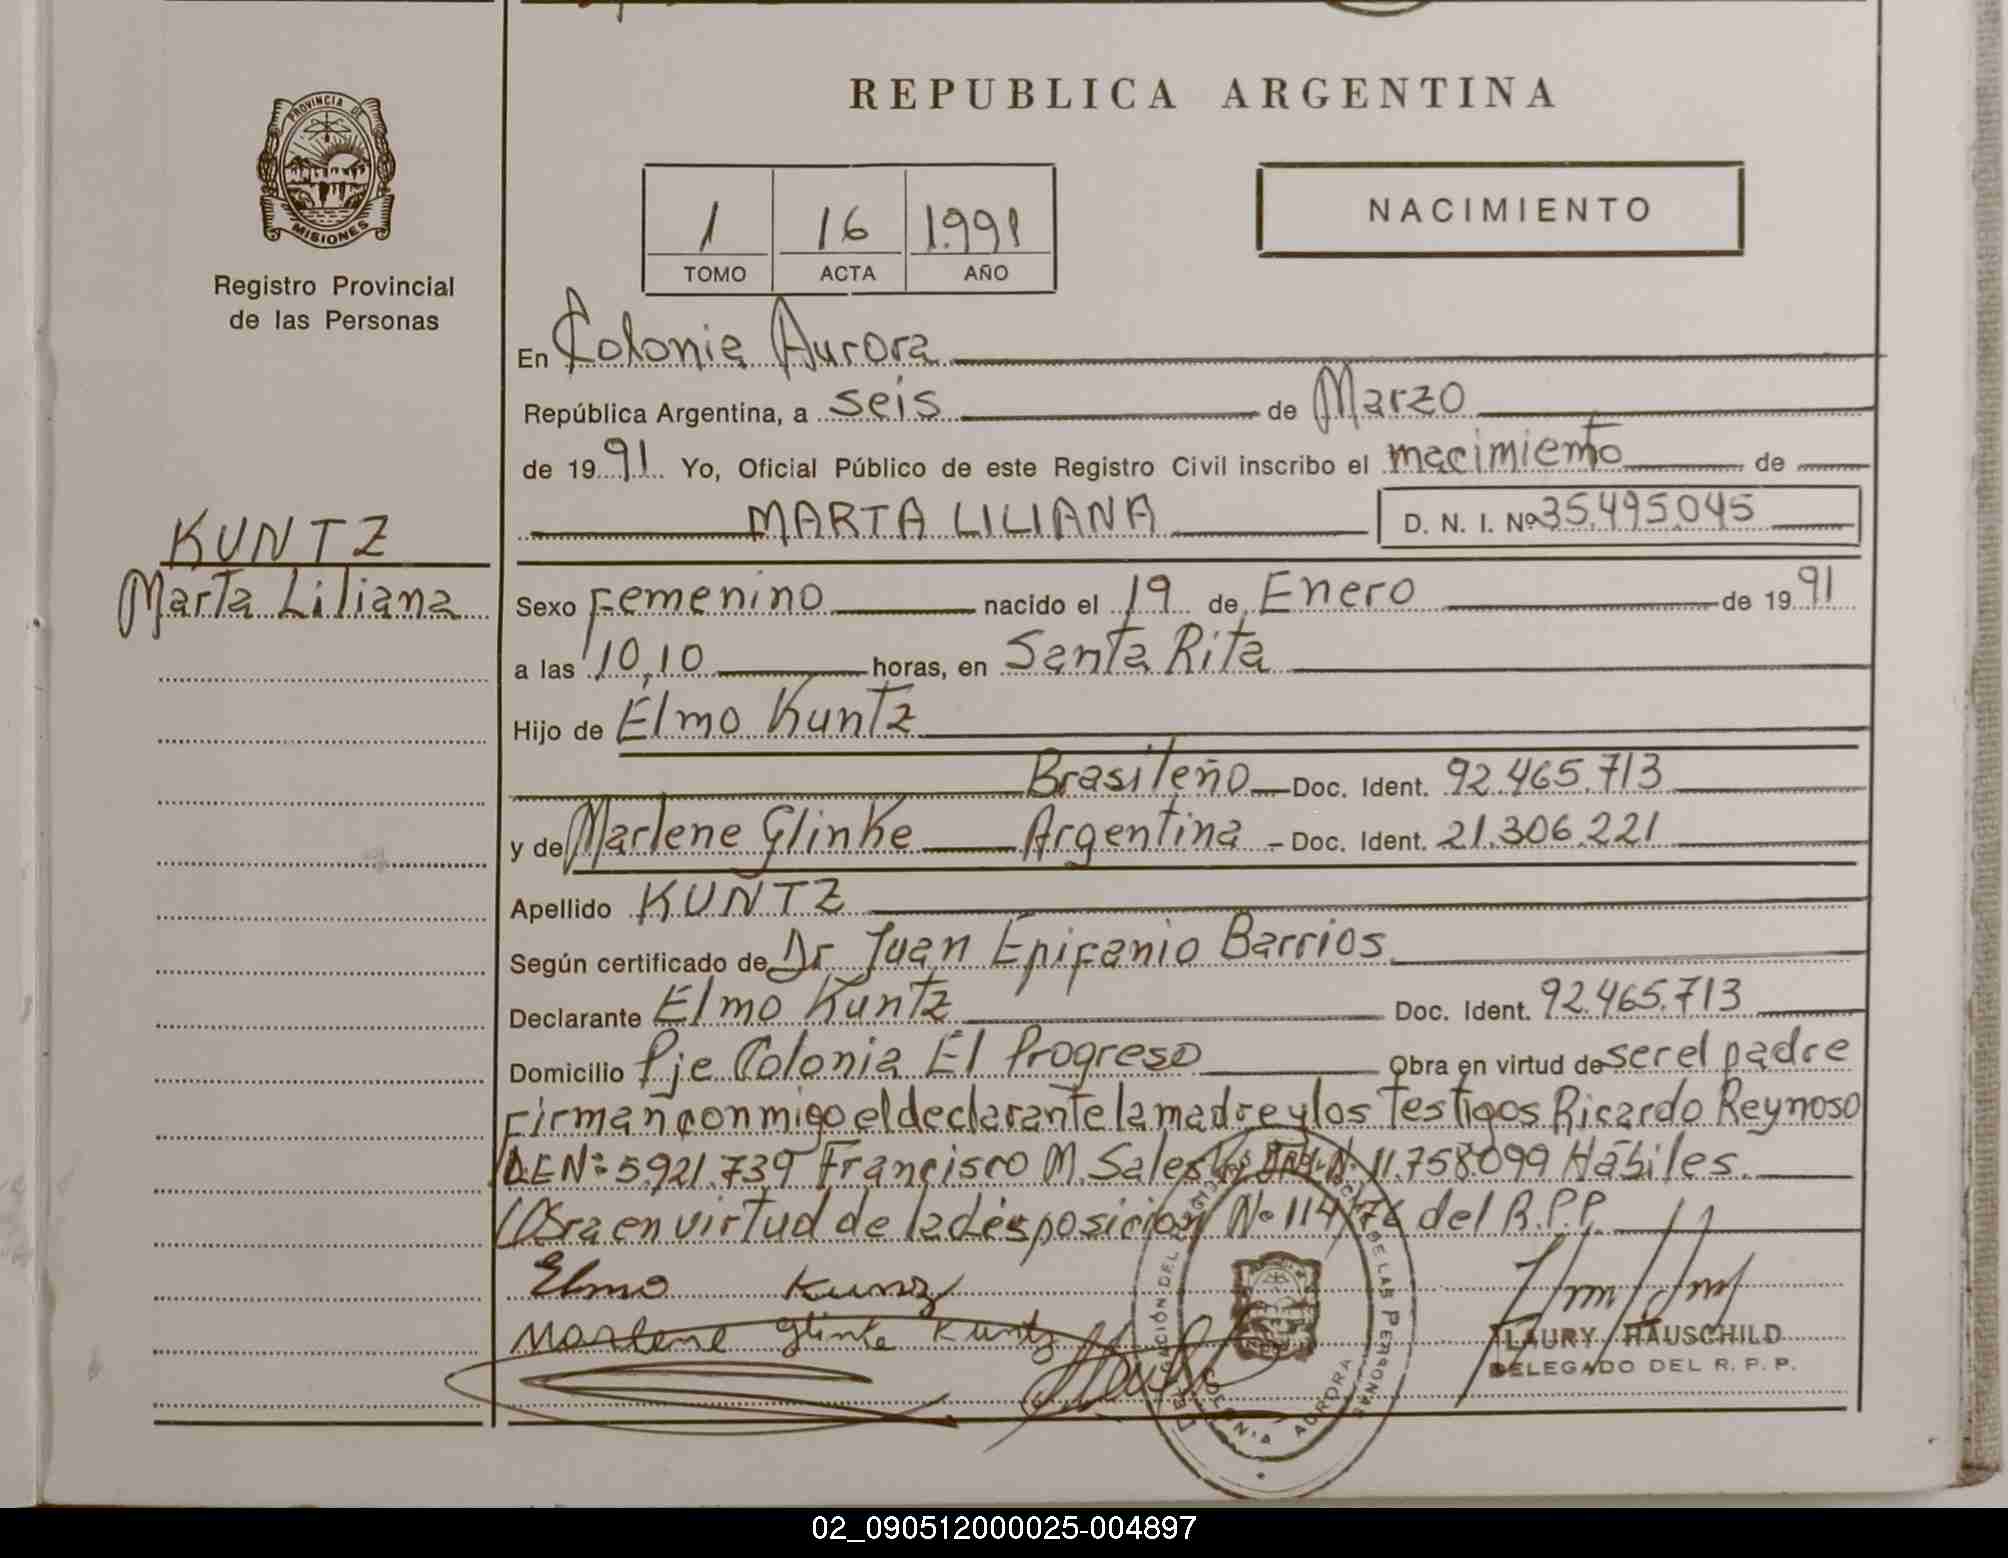 REPUBLICA ARGENTINA
PROVINCIA DE
MISIONES
Registro Provincial
de las Personas
1 16 1.991
TOMO ACTA AÑO
NACIMIENTO
En Colonia Aurora
República Argentina, a seis de Marzo
de 1991 Yo, Oficial Público de este Registro Civil inscribo el nacimiento de
MARTA LILIANA D. N. I. Nº 35.495.045
KUNTZ
Marta Liliana
Sexo Femenino nacido el 19 de Enero de 1991
a las 10,10 horas, en Santa Rita
Hijo de Elmo Kuntz
Brasileño Doc. Ident. 92.465.713
y de Marlene Glinke Argentina - Doc. Ident. 21.306.221
Apellido KUNTZ
Según certificado de Dr Juan Epifanio Barrios
Declarante Elmo Kuntz Doc. Ident. 92.465.713
Domicilio Pje Colonia El Progreso Obra en virtud de ser el padre
Firman conmigo el declarante la madre y los Testigos Ricardo Reynoso
LEN: 5.921.739 Francisco M. Sales 11.758.099 Hábiles.
Obra en virtud de la desposicion Nº 114/76 del R.P.P.
Elmo Kunz
Marlene Glinke Kuntz
FLAURY HAUSCHILD
DELEGADO DEL R. P. P.
DE LAS PERSONAS
COLONIA AURORA
02_090512000025-004897